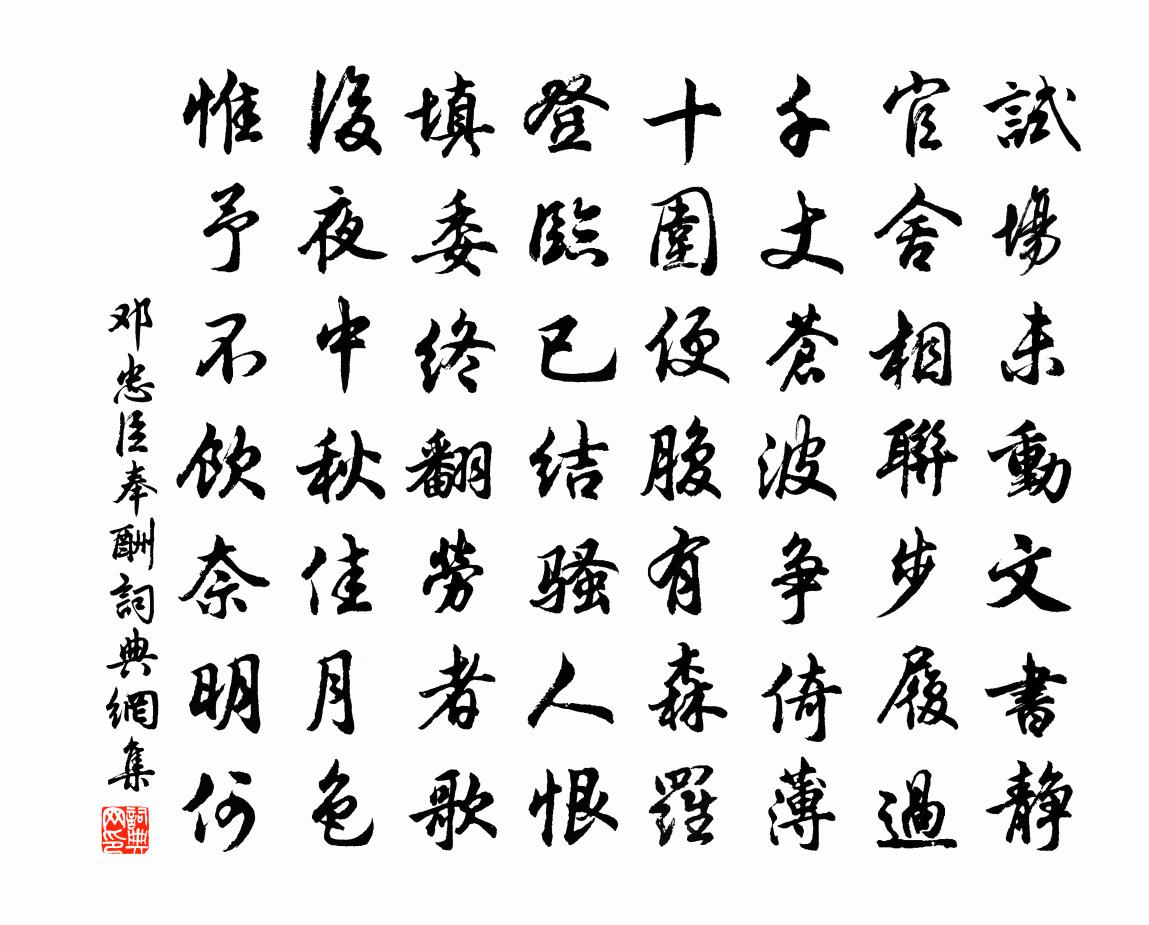 試場未動文書静
官舍相聯步履過
千丈蒼波争倚薄
十圍便腹有森羅
登臨已结骚人恨
填委终翻勞者歌
後夜中秋佳月色
惟予不飲奈明何
邓忠臣奉酬詞典網集
詞典网印